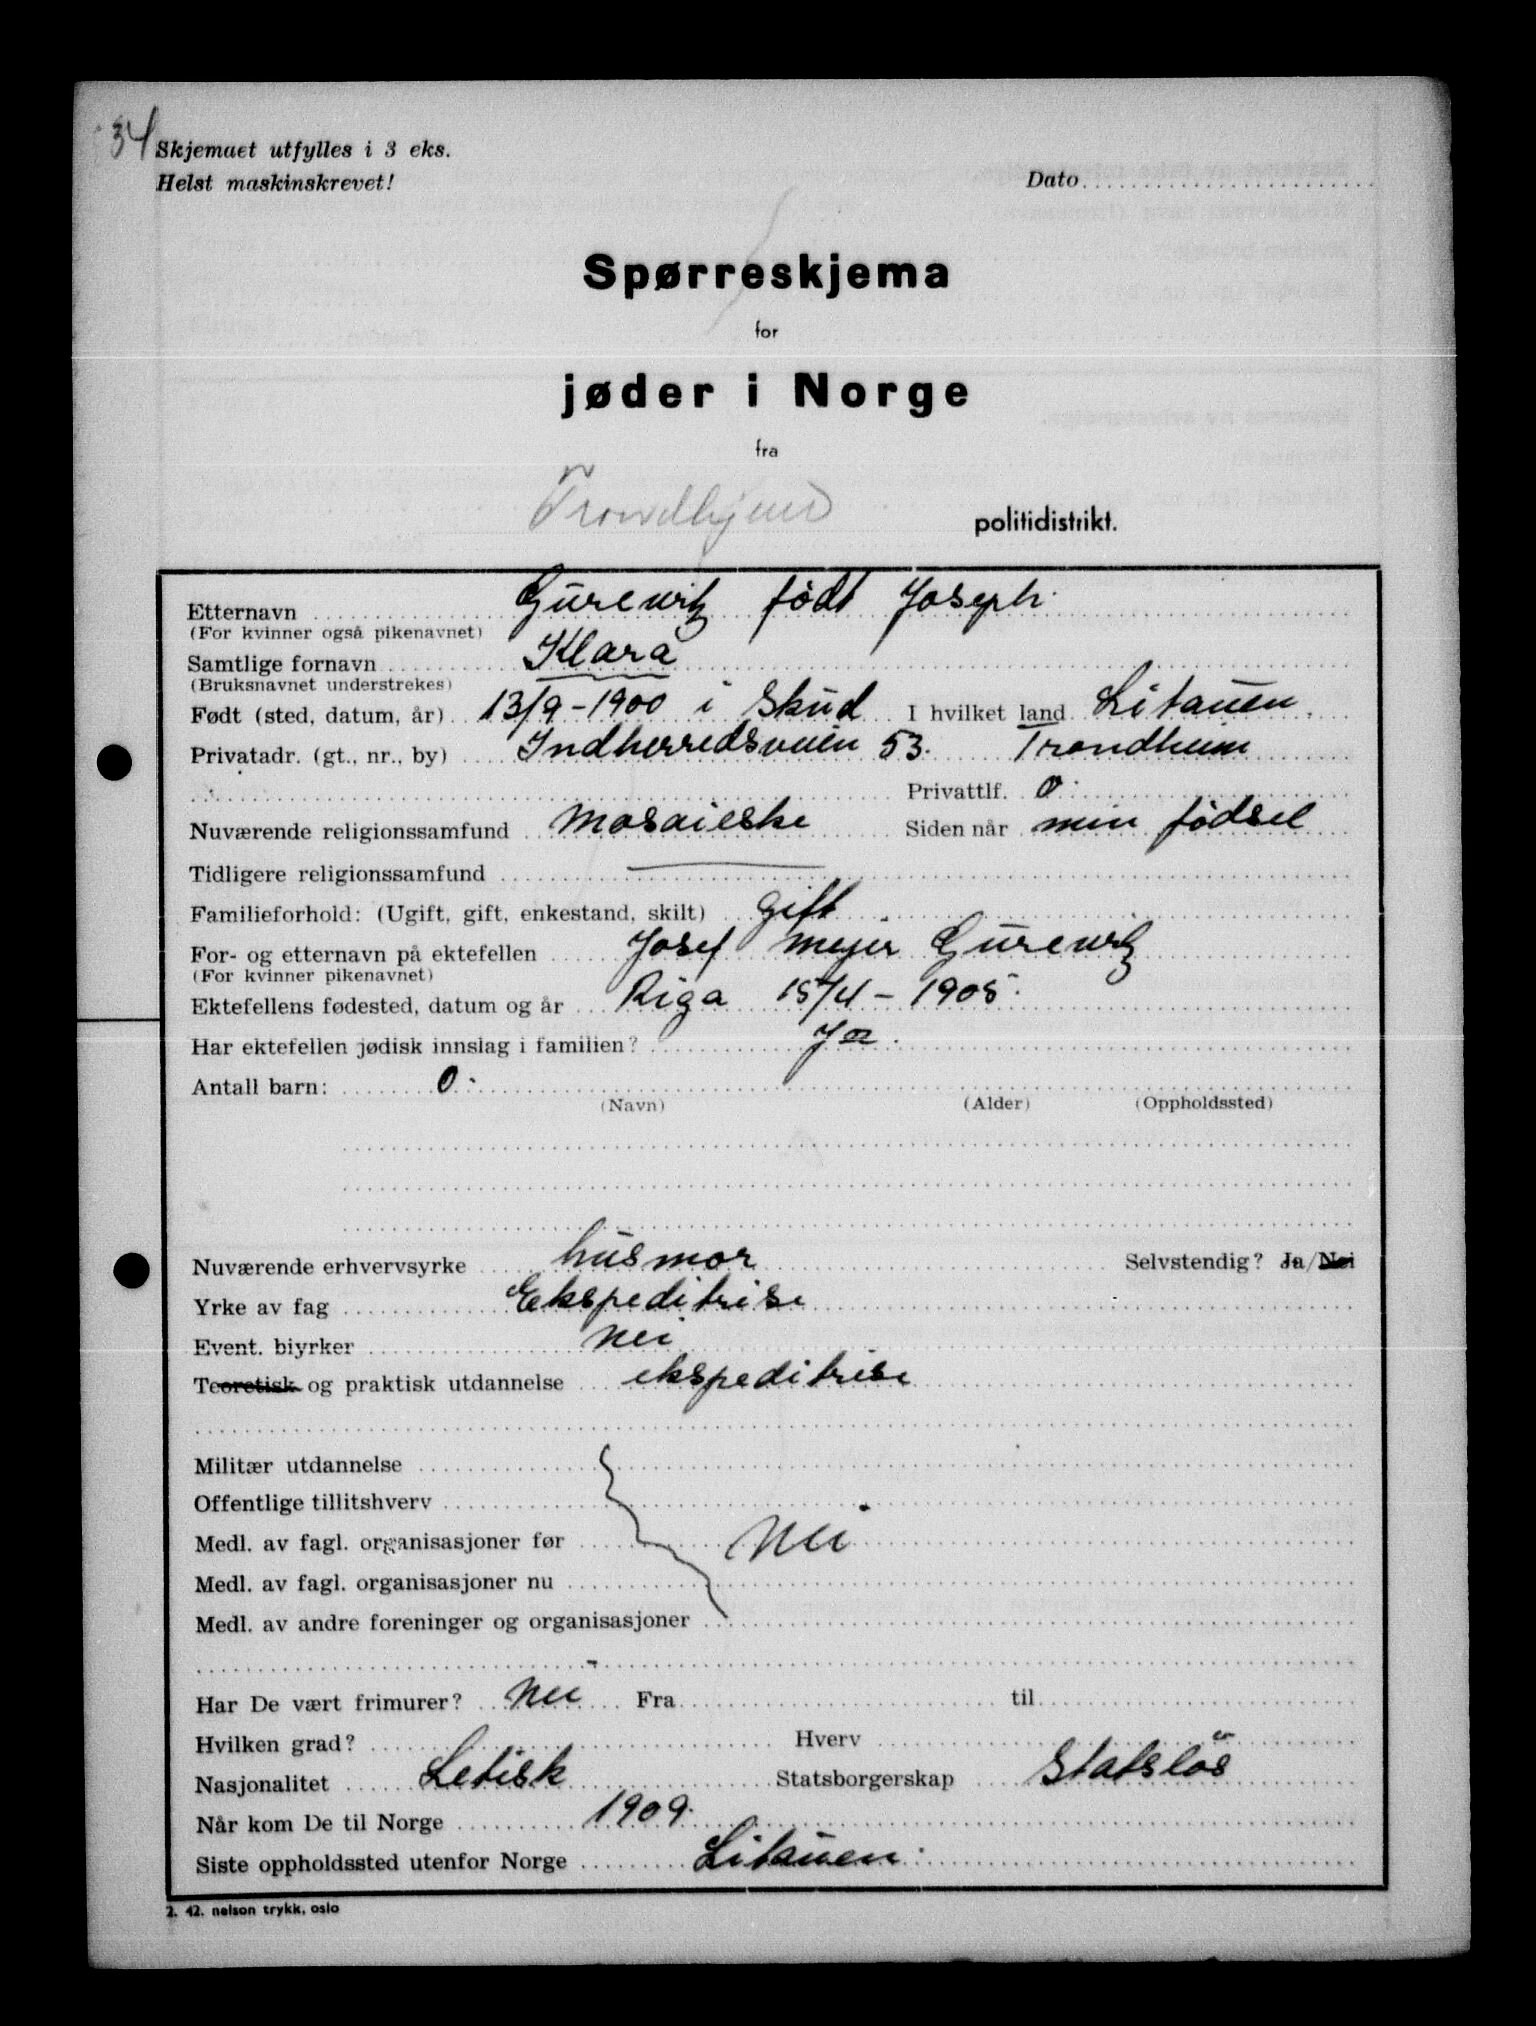 34
Skjemaet utfylles i 3 eks.
Helst maskinskrevet!
Dato
Spørreskjema
for
jøder i Norge
fra
Trondhjem politidistrikt.
Etternavn Gurewitz født Joseph.
(For kvinner også pikenavnet)
Samtlige fornavn Klara
(Bruksnavnet understrekes)
Født (sted, datum, år) 13/9-1900 i Skud I hvilket land Litauen.
Privatadr. (gt., nr., by) Indherredsveien 53. Trondheim
Privattlf. 0.
Nuværende religionssamfund Mosaieske Siden når min fødsel
Tidligere religionssamfund
Familieforhold: (Ugift, gift, enkestand, skilt) gift
For- og etternavn på ektefellen Josef Mejer Gurewitz
(For kvinner pikenavnet)
Ektefellens fødested, datum og år Riga 15/4-1905.
Har ektefellen jødisk innslag i familien? Ja.
Antall barn: 0.
(Navn) (Alder) (Oppholdssted)
Nuværende erhvervsyrke husmor Selvstendig? Ja/Nei
Yrke av fag Ekspeditrise
Event. biyrker Nei
Teoretisk og praktisk utdannelse ekspeditrise
Militær utdannelse
Offentlige tillitshverv
Medl. av fagl. organisasjoner før Nei
Medl. av fagl. organisasjoner nu
Medl. av andre foreninger og organisasjoner
Har De vært frimurer? Nei Fra til
Hvilken grad? Hverv
Nasjonalitet Letisk Statsborgerskap Statsløs
Når kom De til Norge 1909.
Siste oppholdssted utenfor Norge Litauen.
2. 42. nelson trykk, oslo